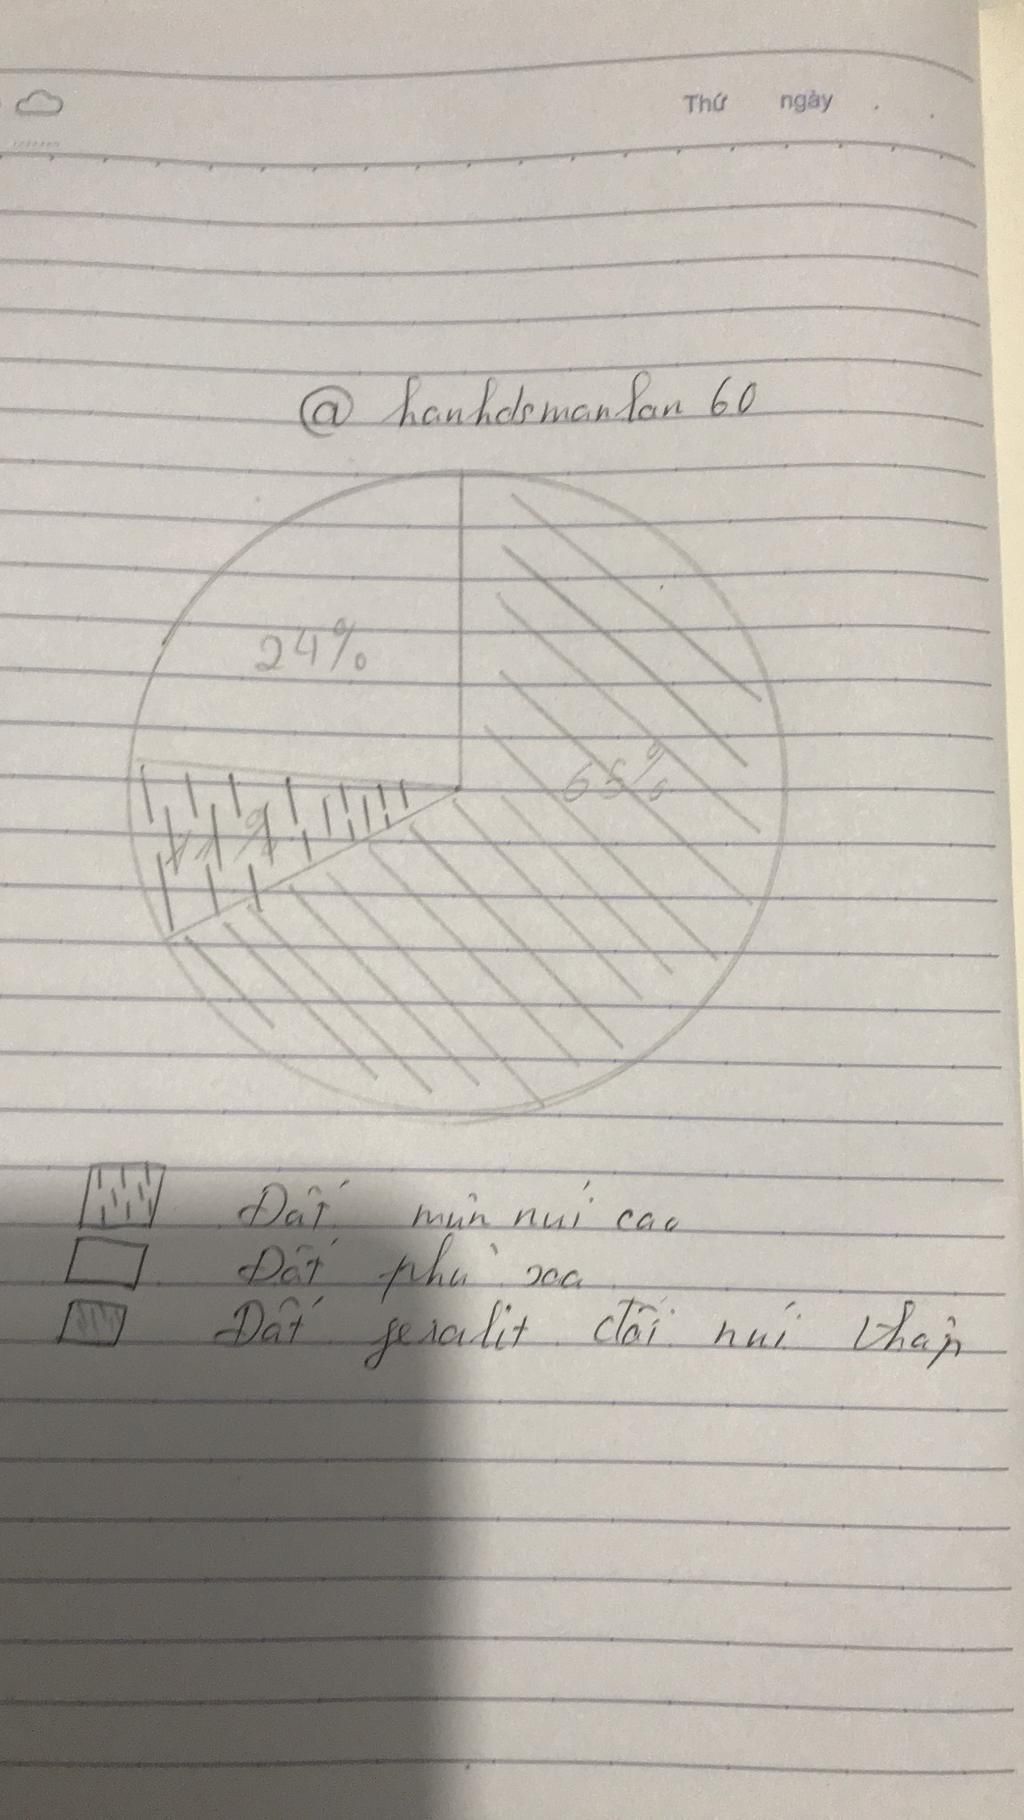 Thứ ngày
@ hanhdsmanlan 60
24%
65%
11%
Đất mùn núi cao
Đất phù sa
Đất feralit đồi núi thấp